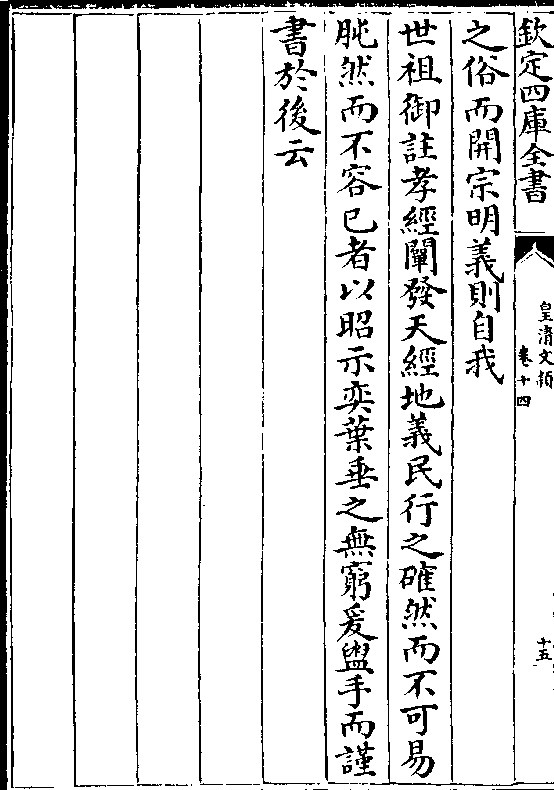 欽定四庫全書
皇清文穎
卷十四
十五
之俗而開宗明義則自我
世祖御註孝經闡發天經地義民行之確然而不可易
肫然而不容已者以昭示奕葉垂之無窮爰盥手而謹
書於後云